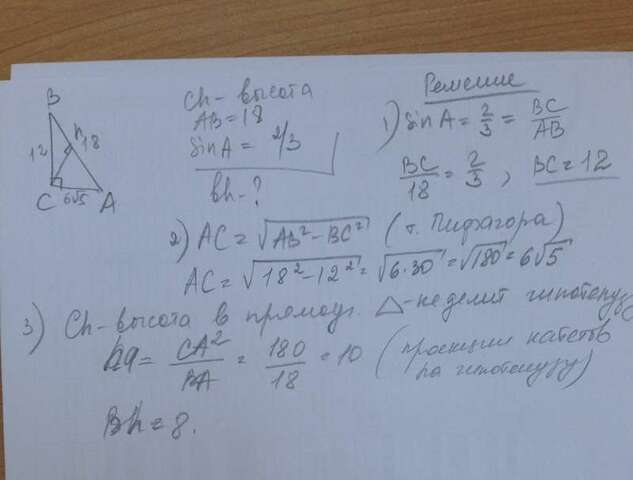 B
h
12
18
C
6√5
A
Ch - высота
AB = 18
sin A = 2/3
Bh - ?
Решение
1) sin A = 2/3 = BC/AB
BC/18 = 2/3, BC = 12
2) AC = √AB² - BC² (т. Пифагора)
AC = √18² - 12² = √6·30 = √180 = 6√5
3) Ch - высота в прямоуг. △ - не делит гипотенузу
hA = CA²/BA = 180/18 = 10 (проекции катетов
на гипотенузу)
Bh = 8.